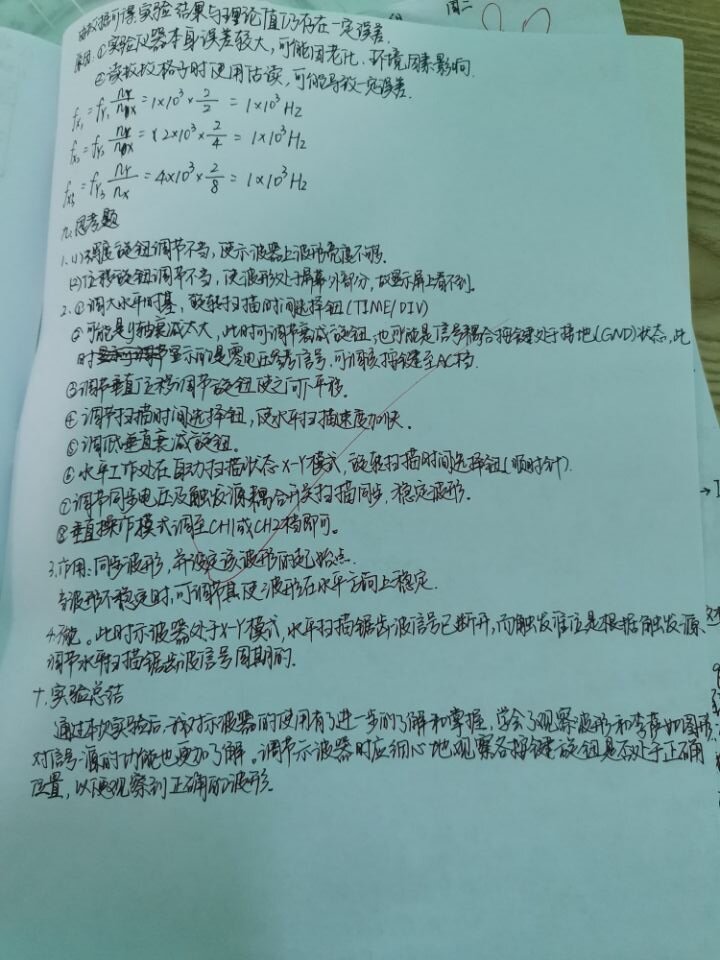 由数据可得,实验结果与理论值仍存在一定误差.
原因:①实验仪器本身误差较大,可能因老化、环境因素影响.
②读数按格子时使用估读,可能导致一定误差.
fx₁ = fy₁ nY/nX = 1×10³ × 2/2 = 1×10³Hz
fx₂ = fy₂ nY/nX = 2×10³ × 2/4 = 1×10³Hz
fx₃ = fy₃ nY/nX = 4×10³ × 2/8 = 1×10³Hz
九.思考题
1.(1)辉度旋钮调节不当,使示波器上波形亮度不够.
(2)位移旋钮调节不当,使波形处于屏幕外部分,故显示屏上看不到.
2.①调大水平时基,旋转扫描时间选择钮(TIME/DIV)
②可能是y轴衰减太大,此时可调节衰减旋钮,也可能是信号耦合按键处于接地(GND)状态,此
时显示的是零电压参考信号,可调该按键至AC档.
③调节垂直位移调节旋钮使之向下平移.
④调节扫描时间选择钮,使水平扫描速度加快。
⑤调低垂直衰减旋钮。
⑥水平工作处在自动扫描状态X-Y模式,旋转扫描时间选择钮(顺时针).
⑦调节同步电压及触发源耦合开关扫描同步,稳定波形.
⑧垂直操作模式调至CH1或CH2档即可。
3.作用:同步波形,并设定该波形的起始点.
当波形不稳定时,可调节其使波形在水平方向上稳定.
4.不能。此时示波器处于X-Y模式,水平扫描锯齿波信号已断开,而触发准位是根据触发源、
调节水平扫描锯齿波信号周期的.
十.实验总结
通过本次实验后,我对示波器的使用有了进一步的了解和掌握,学会了观察波形和李萨如图形,
对信号源的功能也更加了解。调节示波器时应细心地观察各按键旋钮是否处于正确
位置,以便观察到正确的波形.